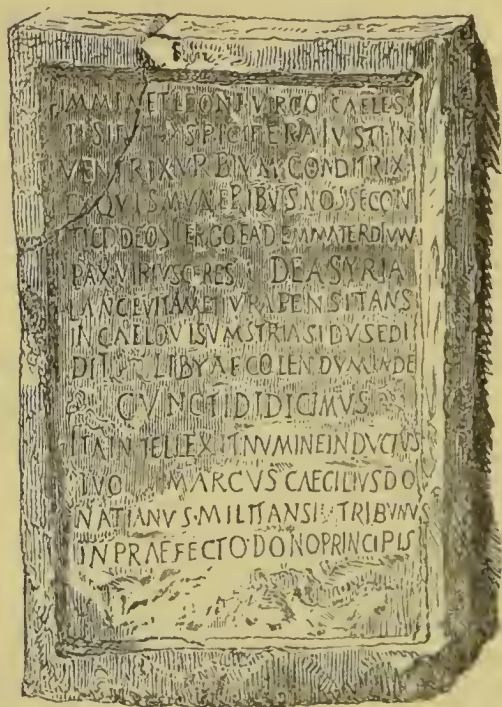 IMMINET LEONI VIRGO CAELES
TI SIT SPICIFERA IVSTI IN
VENTRIX VRBIVM CONDITRIX
QVIS MVNERIBVS NOSSE CON
DEOS ERGO EADEM MATER DIVVM
PAX VIRTVS CERES DEA SYRIA
LANCE VITAM ET IVRA PENSITANS
IN CAELO VISVM SYRIA SIDVS EDI
DIT LIBYAE COLENDVM INDE
CVNCTI DIDICIMVS
ITA INTELLEXIT NVMINE INDVCTVS
TVO MARCVS CAECILIVS DO
NATIANVS·MILITANS TRIBVNVS
IN PRAEFECTO·DONO PRINCIPIS